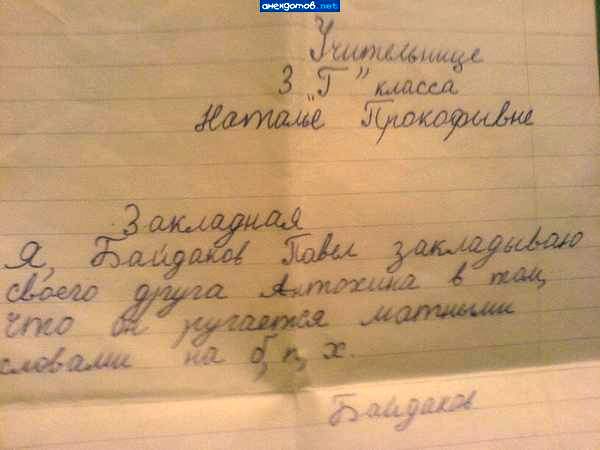 анекдотов.net
Учительнице
3 "Г" класса
Наталье Прокофивне
Закладная
Я, Байдаков Павел закладываю
своего друга Антохина в том,
что он ругается матными
словами на б, п, х.
Байдаков